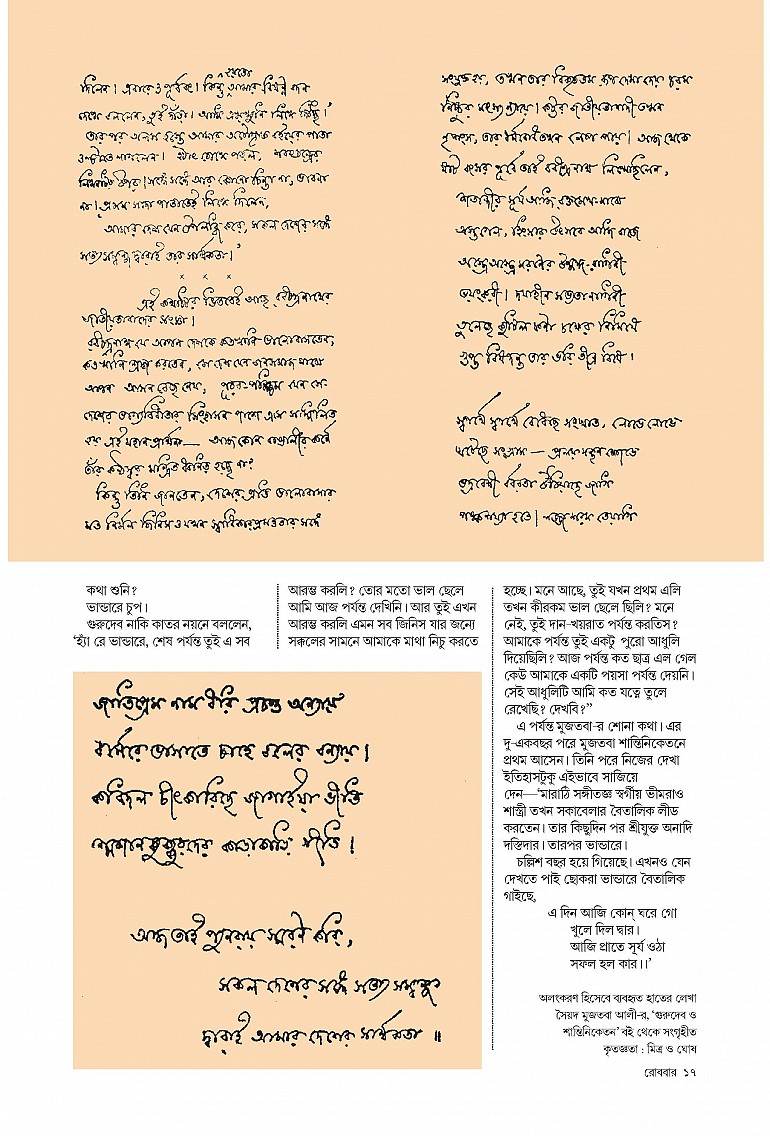 দিলেন। এবারেও পূর্ববৎ। কিন্তু আমার বিষণ্ণ বদন
দেখে বললেন, 'তুই দাঁড়া। আমি এক্ষুনি লিখে দিচ্ছি।'
তারপর অলস হস্তে আমার অটোগ্রাফ বইয়ের পাতা
ওল্টাতে লাগলেন। হঠাৎ চোখে পড়ল, শরৎচন্দ্রের
সঙ্গে সঙ্গে আর কোনো চিন্তা না, ভাবনা
না। প্রথম সাদা পাতাতেই লিখে দিলেন,
'আমার দেশ যেন উপলব্ধি করে, সকল দেশের সঙ্গে
সত্য সম্বন্ধ দ্বারাই তার সার্থকতা।'
x x x
এই কথাটির ভিতরেই আছে রবীন্দ্রনাথের
জাতীয়তাবাদের সংজ্ঞা।
রবীন্দ্রনাথ যে আপন দেশকে কতখানি ভালোবাসতেন,
কতখানি শ্রদ্ধা করতেন, সে দেশ যেন জনসমাজ মাঝে
আপন আসন বেছে নেয়, পূরব-পশ্চিম যেন সে-
দেশের ভাগ্যবিধাতার সিংহাসন পাশে এসে সম্মিলিত
হয় এই মহান প্রার্থনা — আজ কোন বাঙালীর কর্ণে
তাঁর কণ্ঠস্বর মন্দ্রিত ধ্বনিত হচ্ছে না?
কিন্তু তিনি জানতেন, দেশের প্রতি ভালোবাসার
মত নির্মল জিনিসও যখন স্বাধিকারপ্রমত্ততার সঙ্গে
সংযুক্ত হয়, তখন তার বিকৃততম রূপ দেখা দেয় চরম
নিষ্ঠুর সংহার নৃত্যে। কট্টর জাতীয়তাবাদী তখন
নৃশংস, তার ধর্মবোধ তখন লোপ পায়। আজ থেকে
ষাট বৎসর পূর্বে তাই রবীন্দ্রনাথ লিখেছিলেন,
শতাব্দীর সূর্য আজি রক্তমেঘ-মাঝে
অস্ত গেল, হিংসার উৎসবে আজি বাজে
অস্ত্রে অস্ত্রে মরণের উন্মাদ-রাগিণী
ভয়ংকরী। দয়াহীন সভ্যতানাগিনী
তুলেছে কুটিল ফণা চক্ষের নিমিষে
গুপ্ত বিষদন্ত তার ভরি তীব্র বিষে।
স্বার্থে স্বার্থে বেধেছে সংঘাত, লোভে লোভে
ঘটেছে সংগ্রাম — প্রলয়মন্থনক্ষোভে
ভদ্রবেশী বর্বরতা উঠিয়াছে জাগি
পঙ্কশয্যা হতে। লজ্জা শরম তেয়াগি
কথা শুনি?
ভান্ডারে চুপ।
গুরুদেব নাকি কাতর নয়নে বললেন,
'হ্যাঁ রে ভান্ডারে, শেষ পর্যন্ত তুই এ সব
আরম্ভ করলি? তোর মতো ভাল ছেলে
আমি আজ পর্যন্ত দেখিনি। আর তুই এখন
আরম্ভ করলি এমন সব জিনিস যার জন্যে
সক্কলের সামনে আমাকে মাথা নিচু করতে
জাতিপ্রেম নাম ধরি প্রচণ্ড অন্যায়
ধর্মেরে ভাসাতে চাহে বলের বন্যায়।
কবিদল চীৎকারিছে জাগাইয়া ভীতি
শ্মশানকুক্কুরদের কাড়াকাড়ি গীতি।
আজ তাই পুনরায় স্মরণ করি,
সকল দেশের সঙ্গে সত্য সম্বন্ধ
দ্বারাই আমার দেশের সার্থকতা ॥
হচ্ছে। মনে আছে, তুই যখন প্রথম এলি
তখন কীরকম ভাল ছেলে ছিলি? মনে
নেই, তুই দান-খয়রাত পর্যন্ত করতিস?
আমাকে পর্যন্ত তুই একটু পুরো আধুলি
দিয়েছিলি? আজ পর্যন্ত কত ছাত্র এল গেল
কেউ আমাকে একটি পয়সা পর্যন্ত দেয়নি।
সেই আধুলিটি আমি কত যত্নে তুলে
রেখেছি? দেখবি?"
এ পর্যন্ত মুজতবা-র শোনা কথা। এর
দু-একবছর পরে মুজতবা শান্তিনিকেতনে
প্রথম আসেন। তিনি পরে নিজের দেখা
ইতিহাসটুকু এইভাবে সাজিয়ে
দেন—'মারাঠি সঙ্গীতজ্ঞ স্বর্গীয় ভীমরাও
শাস্ত্রী তখন সকাবেলার বৈতালিক লীড
করতেন। তার কিছুদিন পর শ্রীযুক্ত অনাদি
দস্তিদার। তারপর ভান্ডারে।
চল্লিশ বছর হয়ে গিয়েছে। এখনও যেন
দেখতে পাই ছোকরা ভান্ডারে বৈতালিক
গাইছে,
এ দিন আজি কোন্ ঘরে গো
খুলে দিল দ্বার।
আজি প্রাতে সূর্য ওঠা
সফল হল কার।।'
অলংকরণ হিসেবে ব্যবহৃত হাতের লেখা
সৈয়দ মুজতবা আলী-র, 'গুরুদেব ও
শান্তিনিকেতন' বই থেকে সংগৃহীত
কৃতজ্ঞতা : মিত্র ও ঘোষ
রোববার ১৭